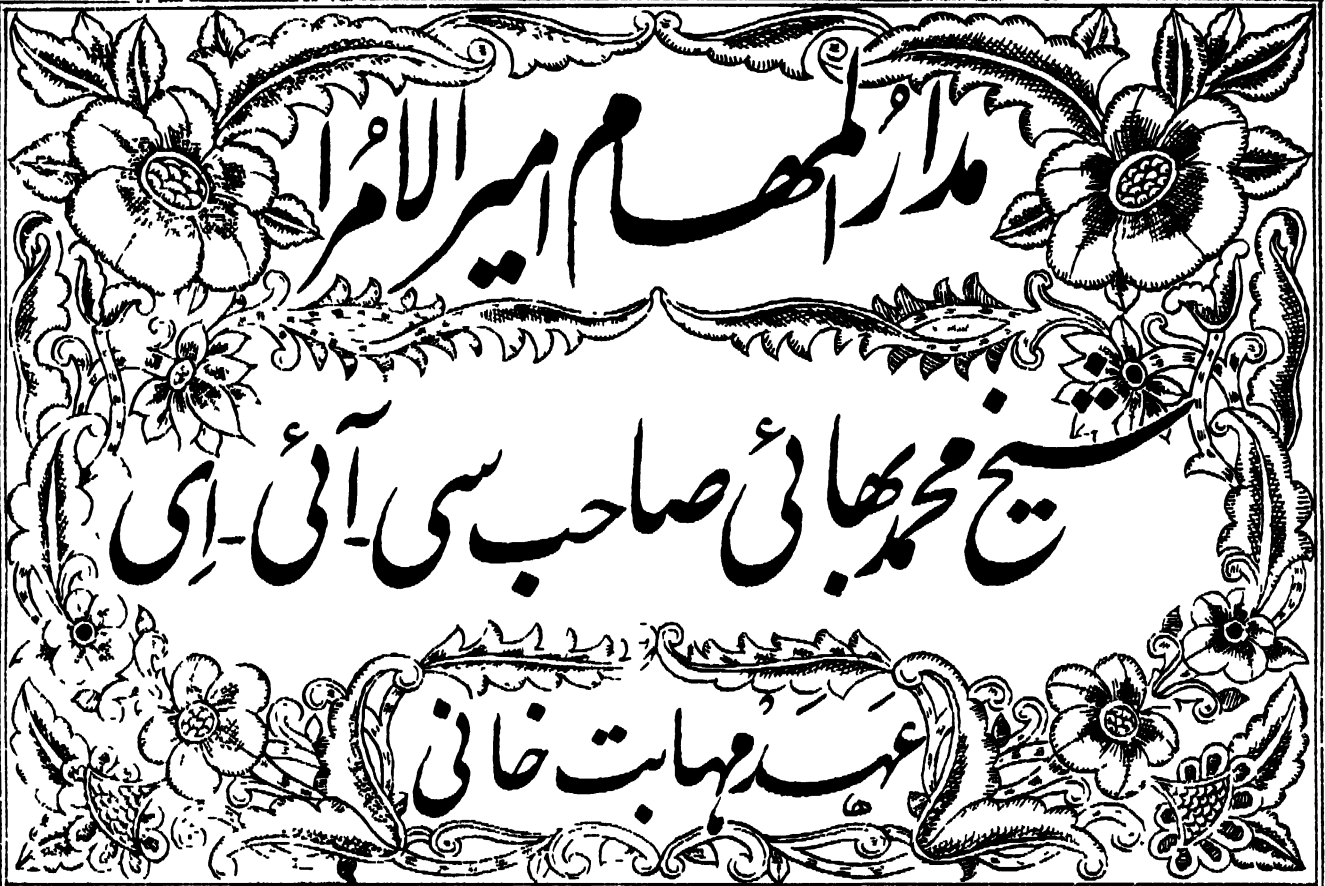 مدارُ المہام امیر الامُرا
شیخ محمد بھائی صاحب سی ۔ آئی ۔ اِی
عہدِ مہابت خانی